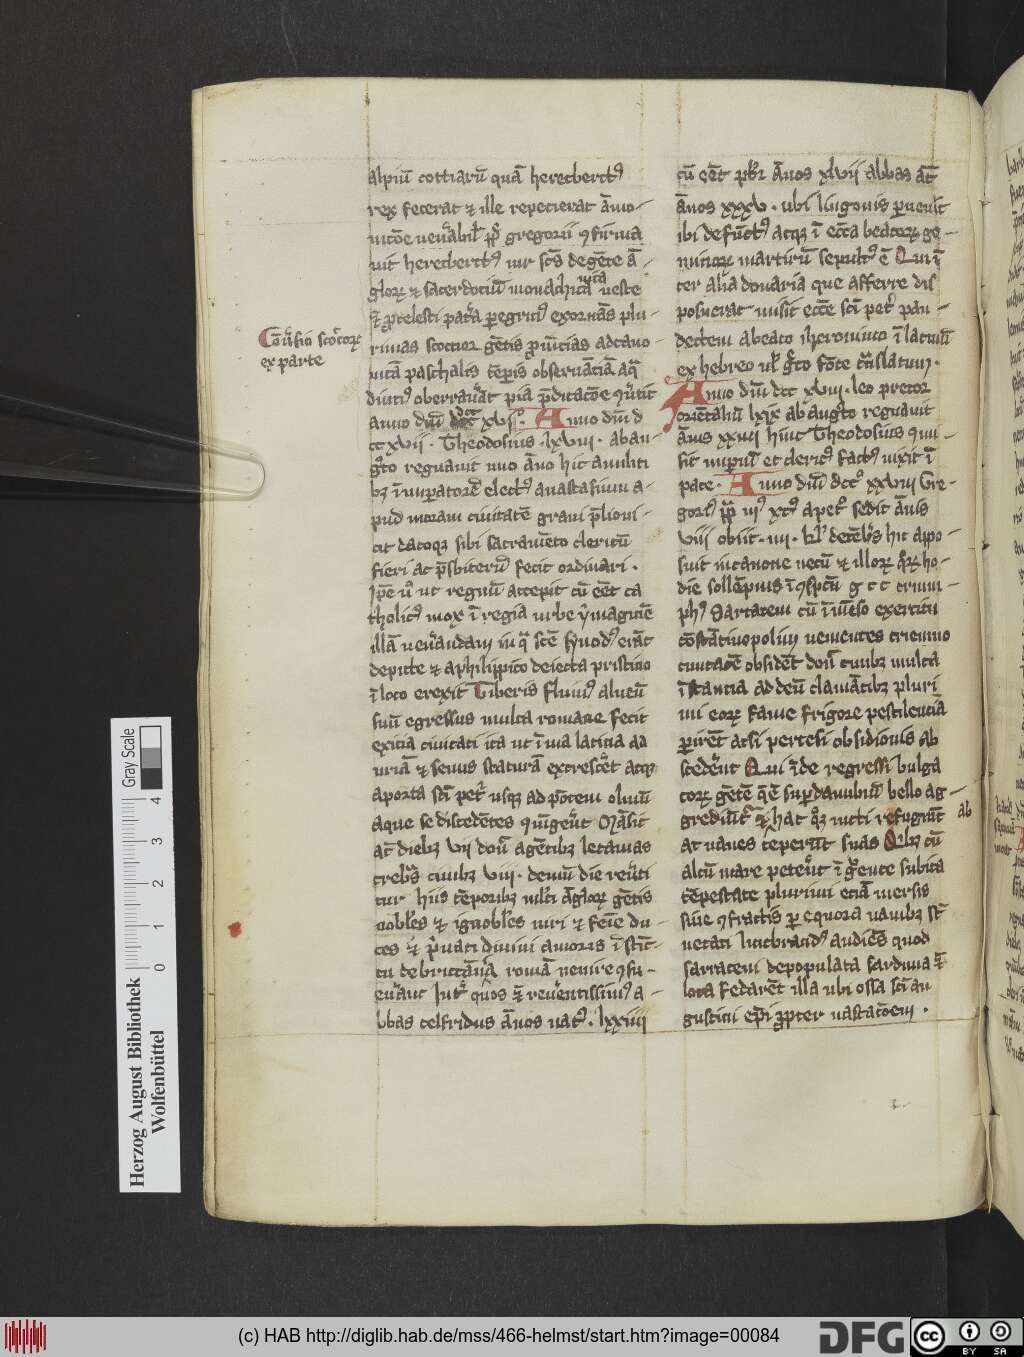 Cōu͛sio scotoꝝ
ex parte
alpiū cottiarū quā herecberctꝰ
rex fecerat ⁊ ille repecierat āmo-
nicōe neu͛abil̕ pp̄ gregorii ꝯfirma
uit herecberctꝰ uir scs̄ de gēte ā
gloꝝ ⁊ sacerdociū monachica uita ueste
⁊ p̄celesti pat͛a peg͛nꝰ exornās plu-
rimas scotior gētis ꝓuincias ad cano-
nicā paschalis tēpis obseruāciā aq̄
diutiꝰ oberrau͛at pia p̄dicacōe ꝯu͛tit
anno dn̄i dcc xvi. Anno dn̄i d
cc xvii. Theodosius lxviii. ab au-
gͦto regnauit uno āno hic amuliti
bꝫ ī imperatorē electꝰ anastasium a-
pud niceam ciuitatē graui p̄lio ui-
cit datoqꝫ sibi sacramēto clericū
fieri ac p̄sbiterū fecit ordinari.
Ipē uͦ ut regnū accepit cū eēt ca
tholicꝰ mox ī regia urbe ymaginē
illā neu͛andam in q̄ scē synodꝰ erāt
depicte ⁊ a philippico deiecta pristino
ī loco erexit Tiberis fluuiꝰ alueū
suū egressus multa romane fecit
exicia ciuitati ita ut ī uia latina ad
unā ⁊ semis staturā excresc͛et atqꝫ
a porta sc̄i pet͛ usqꝫ ad pōtem oliuiū
aque se discedētes ꝯiūgeret Māsit
at̄ diebꝫ vii donͨ agētibꝫ letanias
crebͣs ciuibꝫ viii. demū die reu͛ti
tur hiis tēporibꝫ ml̕ti āgloꝝ gētis
nobl̕es ⁊ ignobl̕es uiri ⁊ feīe du-
ces ⁊ p̄uati diuini amoris īstīc-
tu de brictānia romā uenire ꝯsu-
eu͛ant Int͛ quos ⁊ reu͛entissimꝰ a-
bbas celfridus ānos natꝰ. lxxiiii
cū eēt pb͛r ānos xlvii abbas at̄
ānos xxxv. ubi lingonis puenit
ibi defūctꝰ atqꝫ ī ecc͛a beatoꝝ ge-
minoꝝ martirū sepultꝰ ē Qui ī
ter alia donaria que afferre dis
posuerat misit ecc͛e sc̄i pet͛ pan-
dectem a beato iheronimo ī latinū
ex hebreo ul̕ gͨco fōte tͣnslatum.
Anno dn̄i dcc xviii. leo pretor
oriētaliū lxix ab augͦto regnauit
ānis xxviii hinc Theodosius ꝯiu-
sit imperiū et clericꝰ factꝰ uixit ī
pace. Anno dn̄i dccͦ xxviii Gre-
gorꝰ pp̄ iiiꝰ xcꝰ a pet͛ sedit ānis
viii obiit. iiii. kl̕ decēb͛s hic appo-
suit in canone necū ⁊ illoꝝ qͦꝝ ho-
die sollēpnis ī ꝯspc̄ū g c c trium-
phꝰ Sarraceni cū ī mēso exercitu
cōstātinopolim uenientes triennio
ciuitatē obsidēt donͨ ciuibꝫ multa
īstancia ad deū clamātibꝫ pluri
mi eoꝝ fame frigore pestilencia
ꝑirēt ac si pertesi obsidionis ab
scederūt Qui īde regressi bulga
roꝝ gētē q̄ ē sup danubiū bello ag-
grediūt͛ ⁊ ab hac qͦꝫ uicti refugiūt
ac naues ceperūt suas Qͥbꝫ cū
altū mare peterēt ī gͤuente subita
tēpestate plurimi eciā mersis
siue ꝯfractis per equora nauibꝫ st̄
necati luicbrandꝰ audiēs quod
sarraceni depopulata sardinia ⁊
loca fedarēt illa ubi ossa sc̄i au
gustini ep̄i ꝓpter uastacōem.
Gray Scale
0 1 2 3 4
Herzog August Bibliothek
Wolfenbüttel
(c) HAB http://diglib.hab.de/mss/466-helmst/start.htm?image=00084
DFG
cc
BY SA